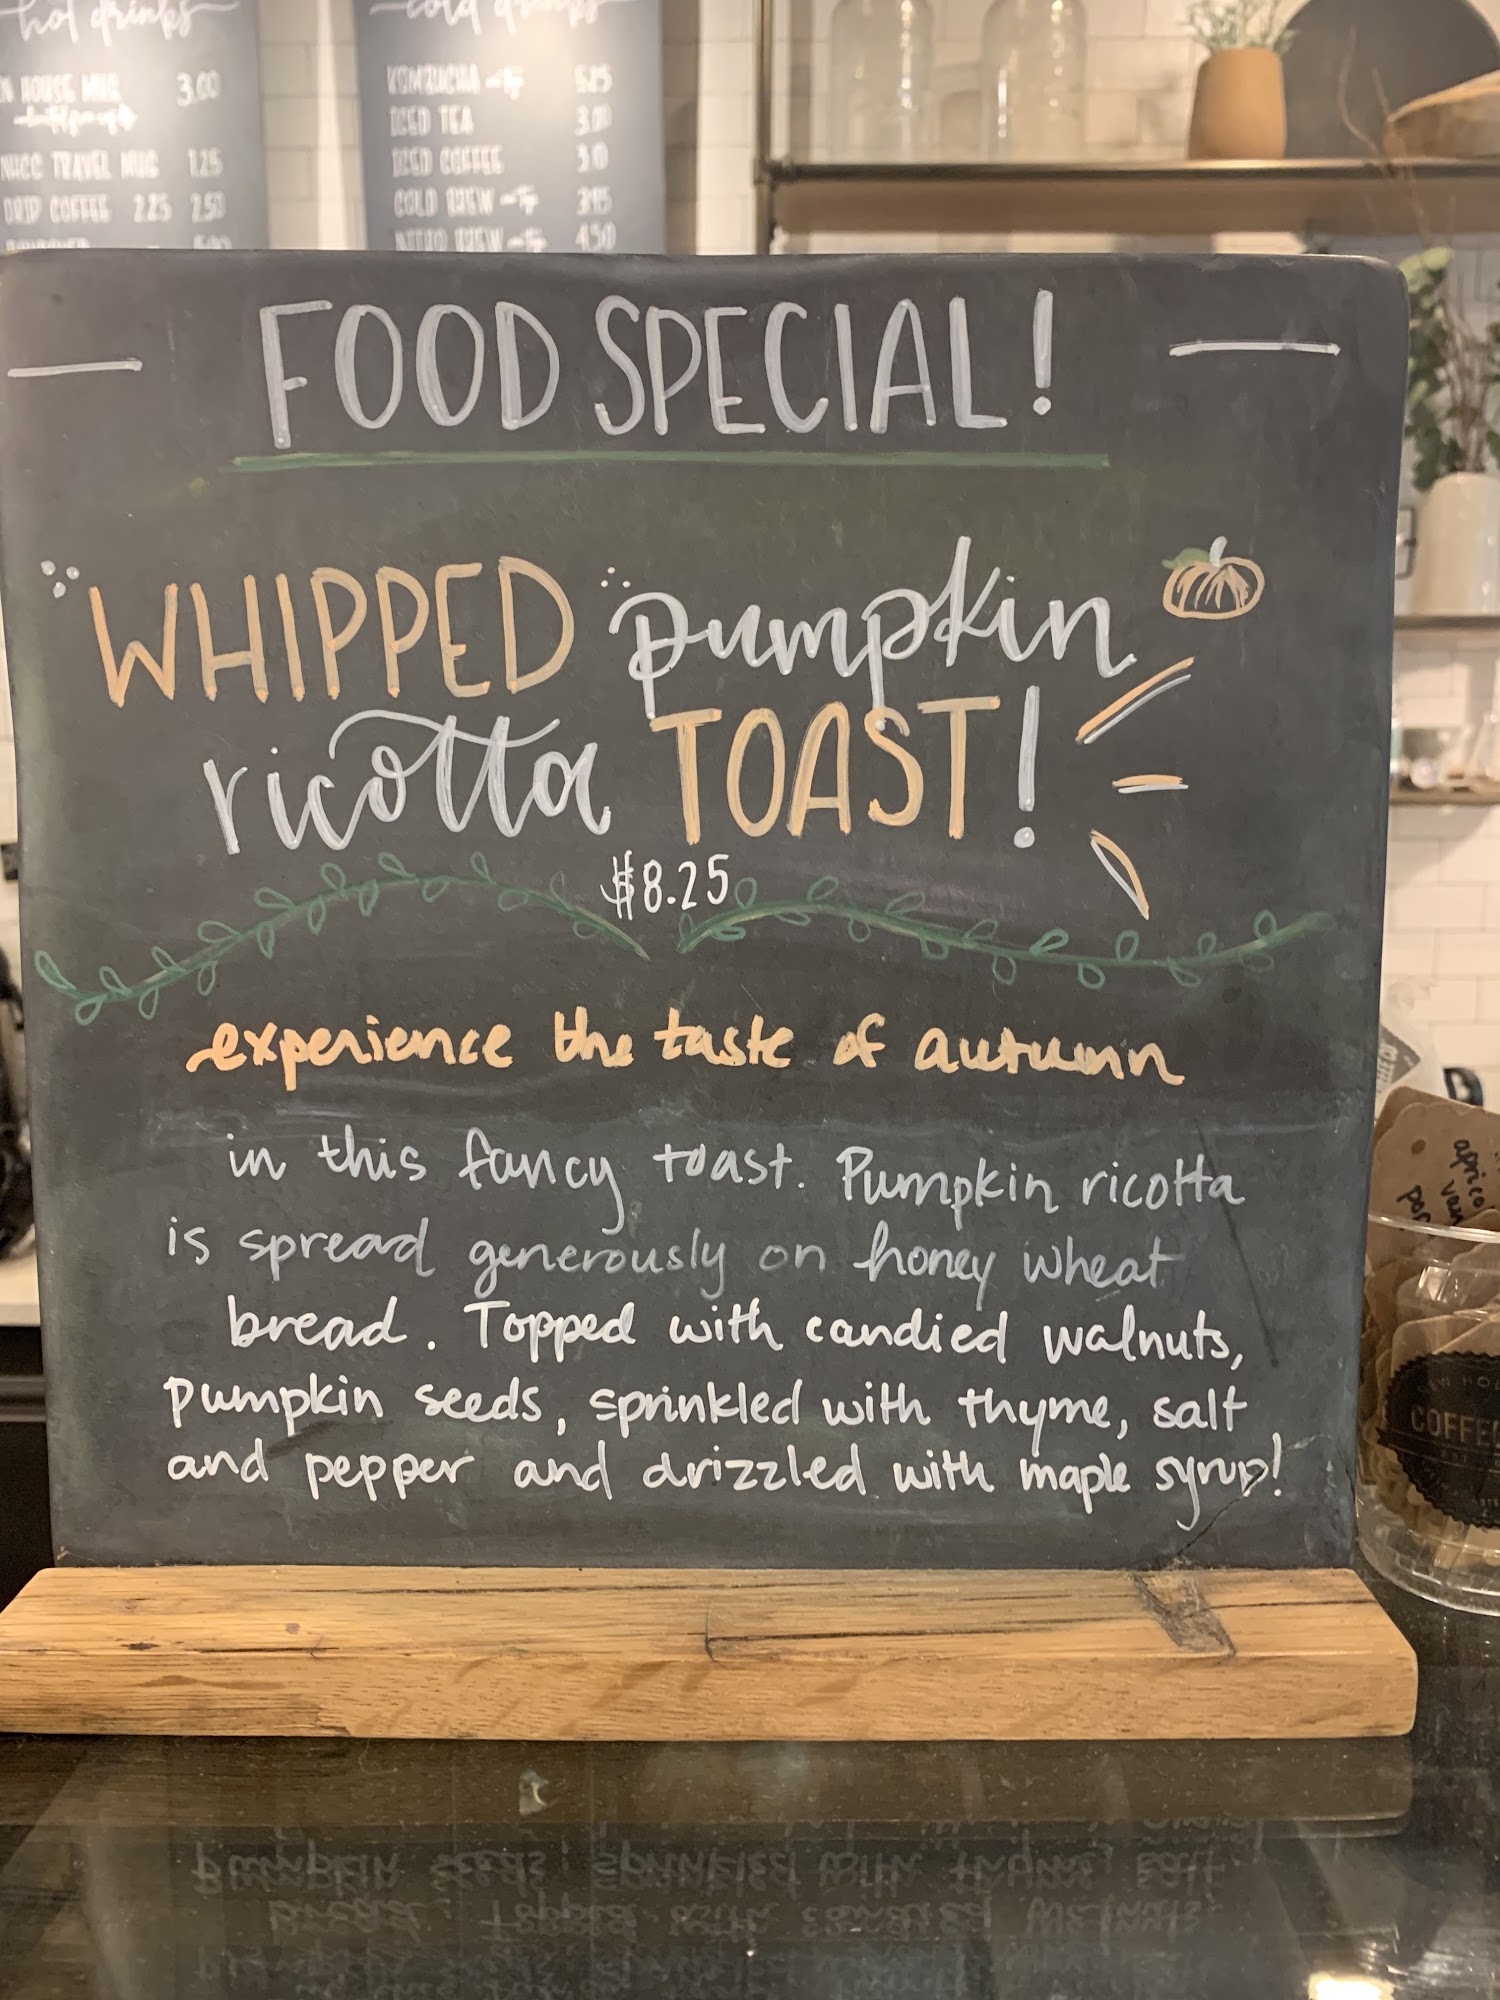 hot drinks
N HOUSE MUG 3.00
NHCC TRAVEL MUG 1.25
DRIP COFFEE 2.25 2.50
cold drinks
KOMBUCHA 5.25
ICED TEA
ICED COFFEE
COLD BREW
NITRO BREW 4.50
FOOD SPECIAL!
WHIPPED pumpkin
ricotta TOAST!
$8.25
experience the taste of autumn
in this fancy toast. Pumpkin ricotta
is spread generously on honey wheat
bread. Topped with candied walnuts,
pumpkin seeds, sprinkled with thyme, salt
and pepper and drizzled with maple syrup!
COFFEE